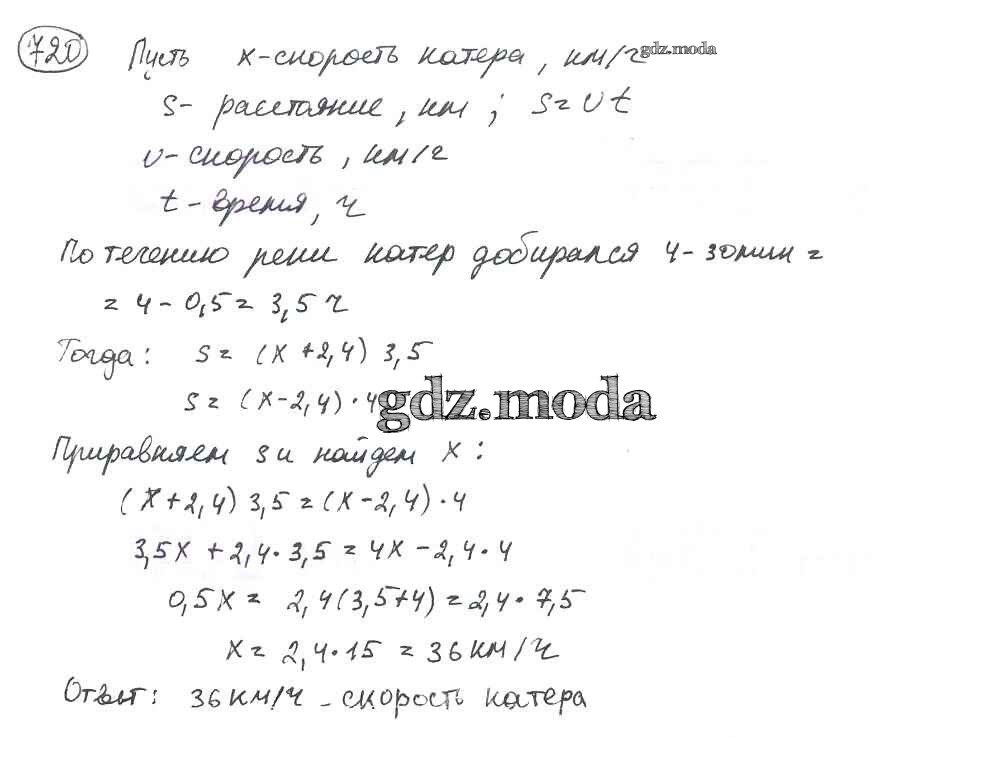 720 Пусть x-скорость катера, км/ч gdz.moda
S- расстояние, км; S=υt
υ-скорость, км/ч
t-время, ч
По течению реки катер добирался 4-30мин=
=4-0,5=3,5 ч
Тогда: S=(x+2,4)3,5
S=(x-2,4)·4
gdz.moda
Приравняем s и найдем x:
(x+2,4)3,5=(x-2,4)·4
3,5x+2,4·3,5=4x-2,4·4
0,5x= 2,4(3,5+4)=2,4·7,5
x= 2,4·15 = 36км/ч
Ответ: 36км/ч-скорость катера